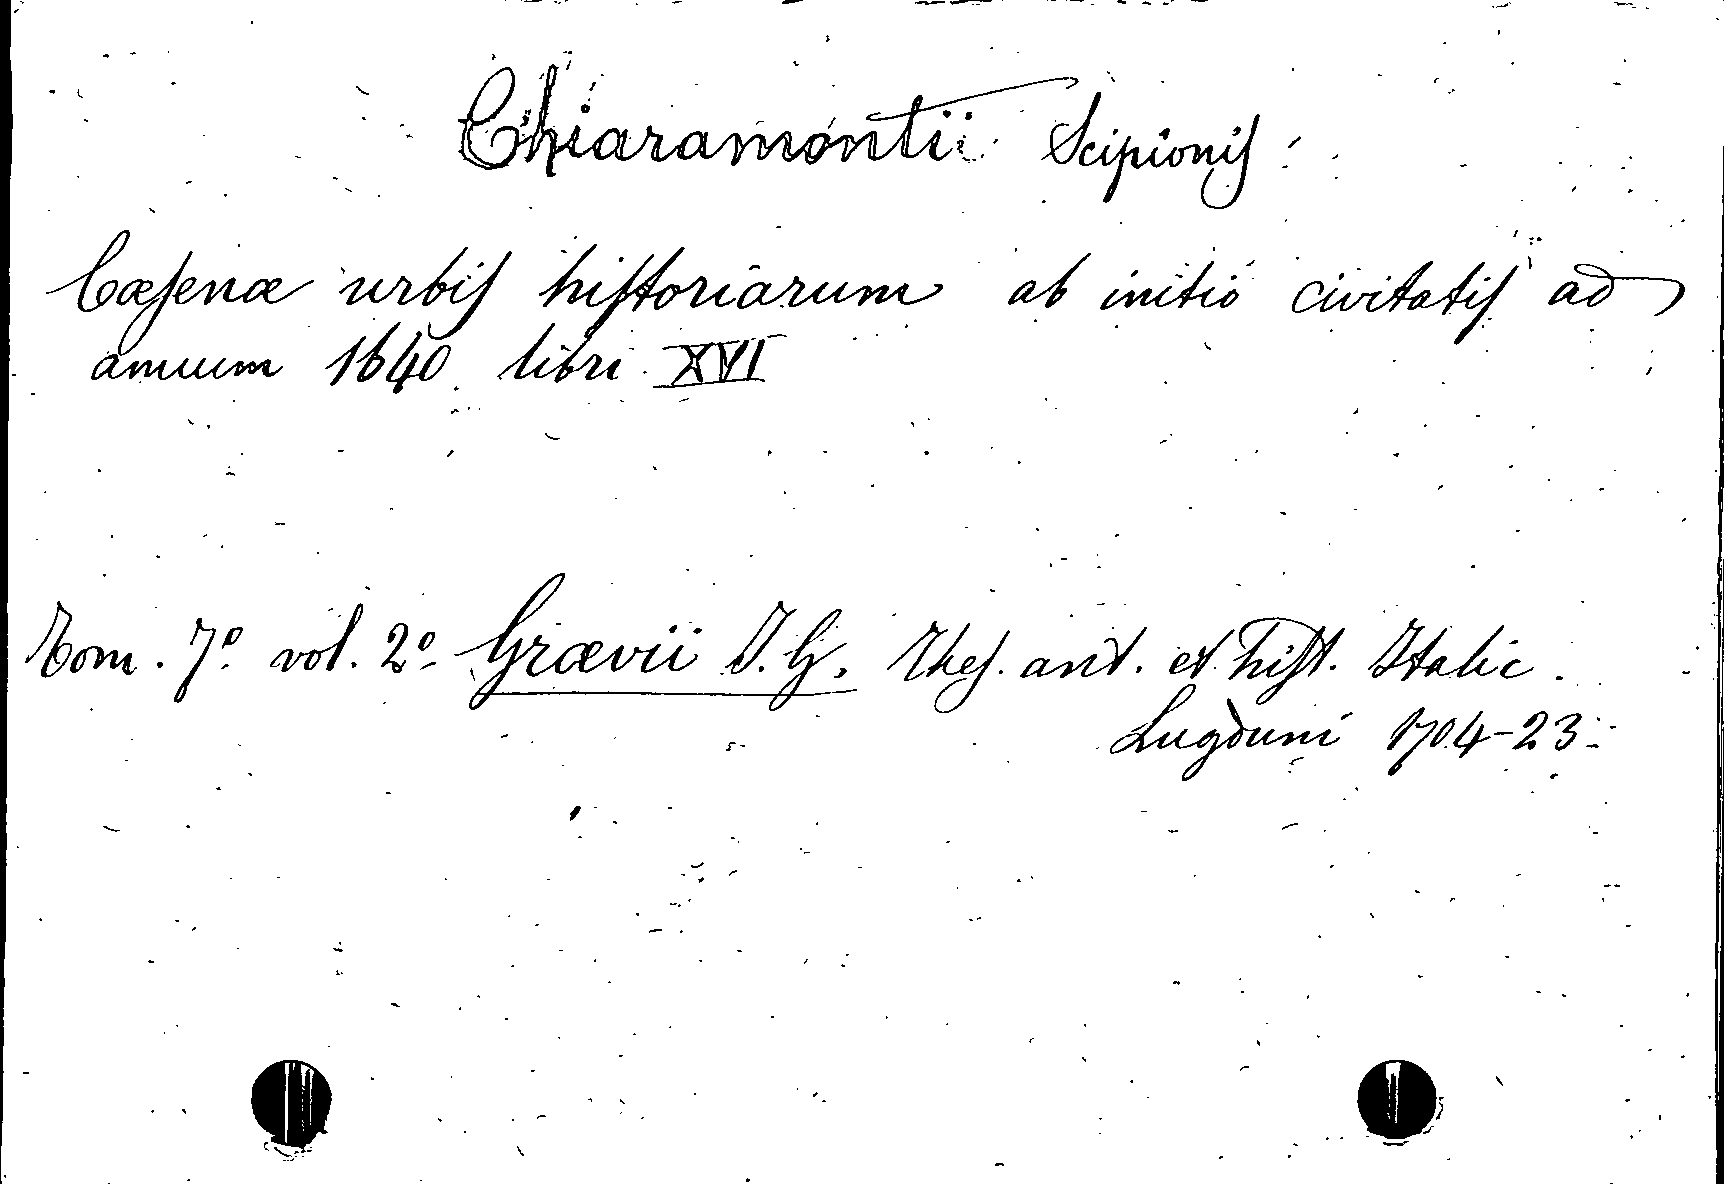 Chiaramontii Scipionis
Cæsenæ urbis historiarum ab initio civitatis ad
annum 1640 libri XVI
Tom. 7º vol. 2º Grævii J. G. Thes. ant. et hist. Italic.
Lugduni 1704-23.